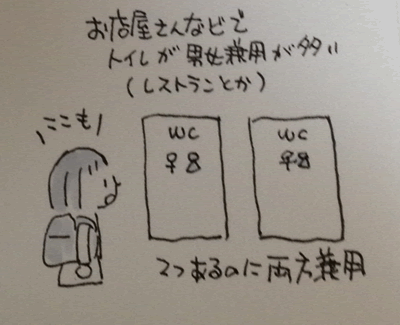 お店屋さんなどで
トイレが男女兼用が多い
(レストランとか)
ここも
WC
WC
2つあるのに両方兼用